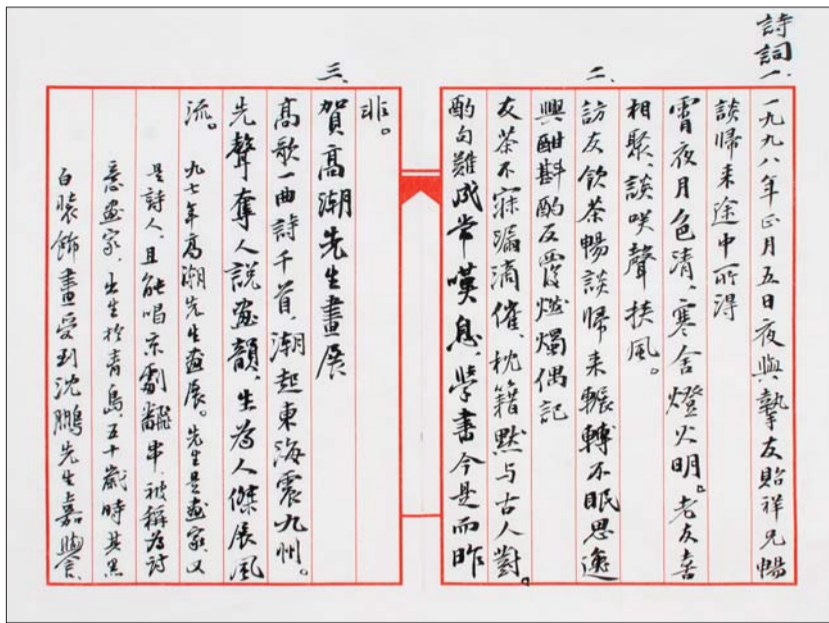 詩詞
一、一九九八年正月五日夜與摯友貽祥兄暢
談歸来途中所得
宵夜月色清、寒舍燈火明。老友喜
相聚、談咲聲扶風。
二、訪友飲茶暢談歸来輾轉不眠思逸
興酣斟酌反覆燃燭偶記
友茶不寐漏滴催、枕籍黙与古人對。
酌句難成常嘆息、學書今是而昨
非。
三、賀高潮先生畫展
高歌一曲詩千首、潮起東海震九州。
先聲奪人説畫韻、生為人傑展風
流。
九七年高潮先生畫展。先生是畫家、又
是詩人、且能唱京劇、串、被稱為詩
意畫家、出生於青島、五十歲時其黑
白裝飾畫受到沈鵬先生嘉譽、